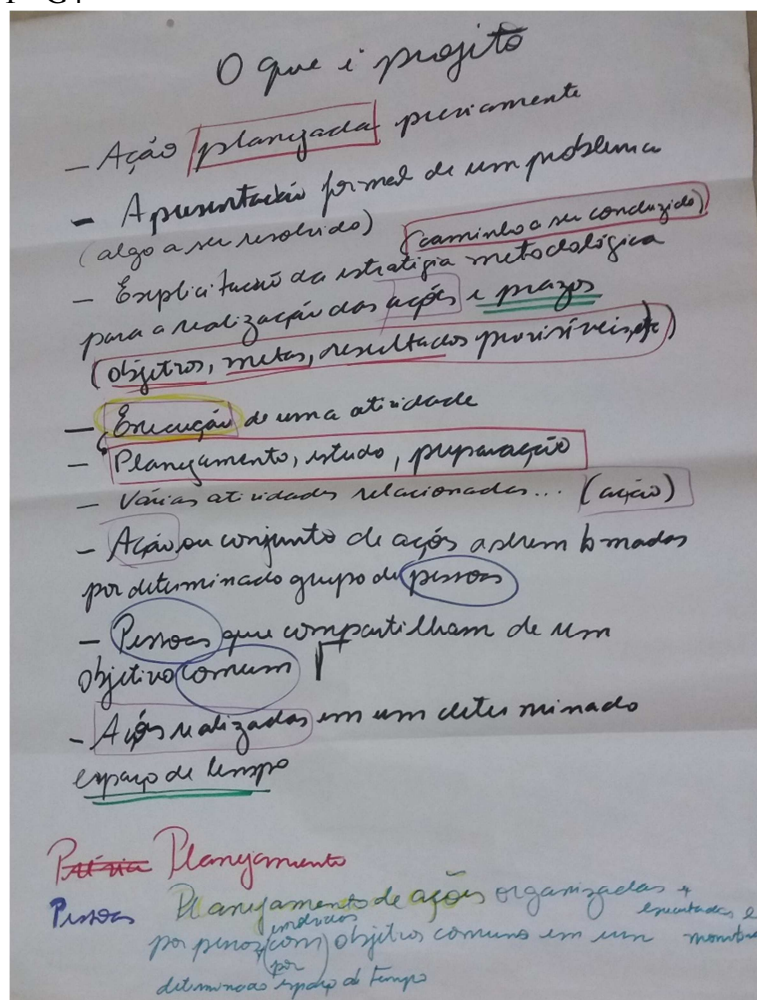 O que é projeto
- Ação planejada previamente
- Apresentação formal de um problema
(algo a ser resolvido) (caminho a ser conduzido)
- Explicitação da estratégia metodológica
para a realização das ações e prazos
(objetivos, metas, resultados previsíveis, etc)
- Execução de uma atividade
- Planejamento, estudo, preparação
- Várias atividades relacionadas... (ação)
- Ação ou conjunto de ações a serem tomadas
por determinado grupo de pessoas
- Pessoas que compartilham de um
objetivo comum
- Ações realizadas em um determinado
espaço de tempo
Planejamento
Pessoas Planejamento de ações organizadas e executadas
por pessoas (com) objetivos comuns em um
por
determinado espaço de tempo